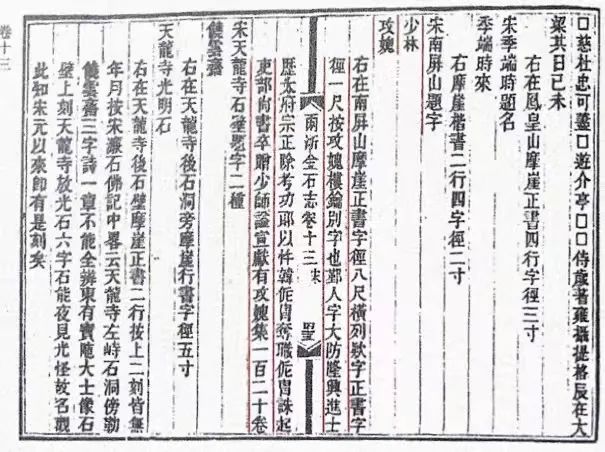 □慈杜忠可盡□遊介亭□□侍歲著雍攝提格辰在大
梁其日己未
右在鳳皇山摩崖正書四行字徑三寸
宋季端時題名
季端時來
右摩崖楷書二行四字徑二寸
宋南屏山題字
少林
攻媿
右在南屏山摩崖正書字徑八尺橫列款字正書字
徑一尺按攻媿樓鑰別字也鄞人字大防隆興進士
兩浙金石志卷十三 宋
歷太府宗正除考功郎以忤韓侂冑奪職侂冑誅起
吏部尚書卒贈少師諡宣獻有攻媿集一百二十卷
宋天龍寺石壁題字二種
饒雲齋
右在天龍寺後石洞旁摩崖行書字徑五寸
天龍寺光明石
右在天龍寺後石壁摩崖正書二行按上二刻皆無
年月按宋巖石佛記中畧云天龍寺左峙石洞傍勒
饒雲齋三字詩一章不能全辨東有寶陁大士像石
壁上刻天龍寺放光石六字石能夜見光怪故名觀
此知宋元以來卽有是刻矣
卷十三